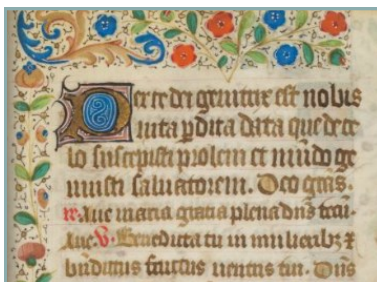 Per te dei genitrix est nobis
vita pdita data que de ce
lo suscepisti prolem et mūdo ge
nuisti saluatorem. Deo grās.
℟. Aue maria gratia plena dn̄s tecū.
Aue. ℣. Benedicta tu in mulieribꝫ ⁊
bn̄dictus fructus uentris tui. Dn̄s